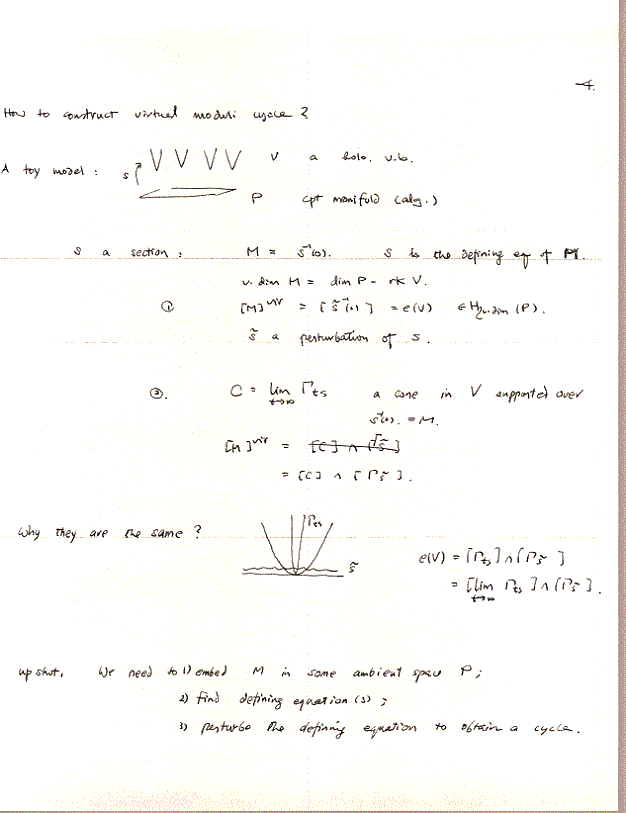 4.
How to construct virtual moduli cycle ?
A toy model : s V V V V V a holo. v.b.
P cpt manifold (alg.)
s a section : M = s⁻¹(0). s is the defining eq of M.
v. dim M = dim P - rk V.
① [M]^vir = [ s̃⁻¹(0) ] = e(V) ∈ H_{2v.dim} (P).
s̃ a perturbation of s.
②. C = lim_{t→∞} Γ_ts a cone in V supported over
s⁻¹(0). = M.
[M]^vir =
= [C] ∩ [ Γ_s̃ ].
Why they are the same ? Γ_ts s̃ e(V) = [Γ_ts] ∩ [Γ_s̃ ]
= [lim_{t→∞} Γ_ts ] ∩ [Γ_s̃ ].
up shot. We need to 1) embed M in some ambient space P ;
2) find defining equation (s) ;
3) perturbe the defining equation to obtain a cycle.